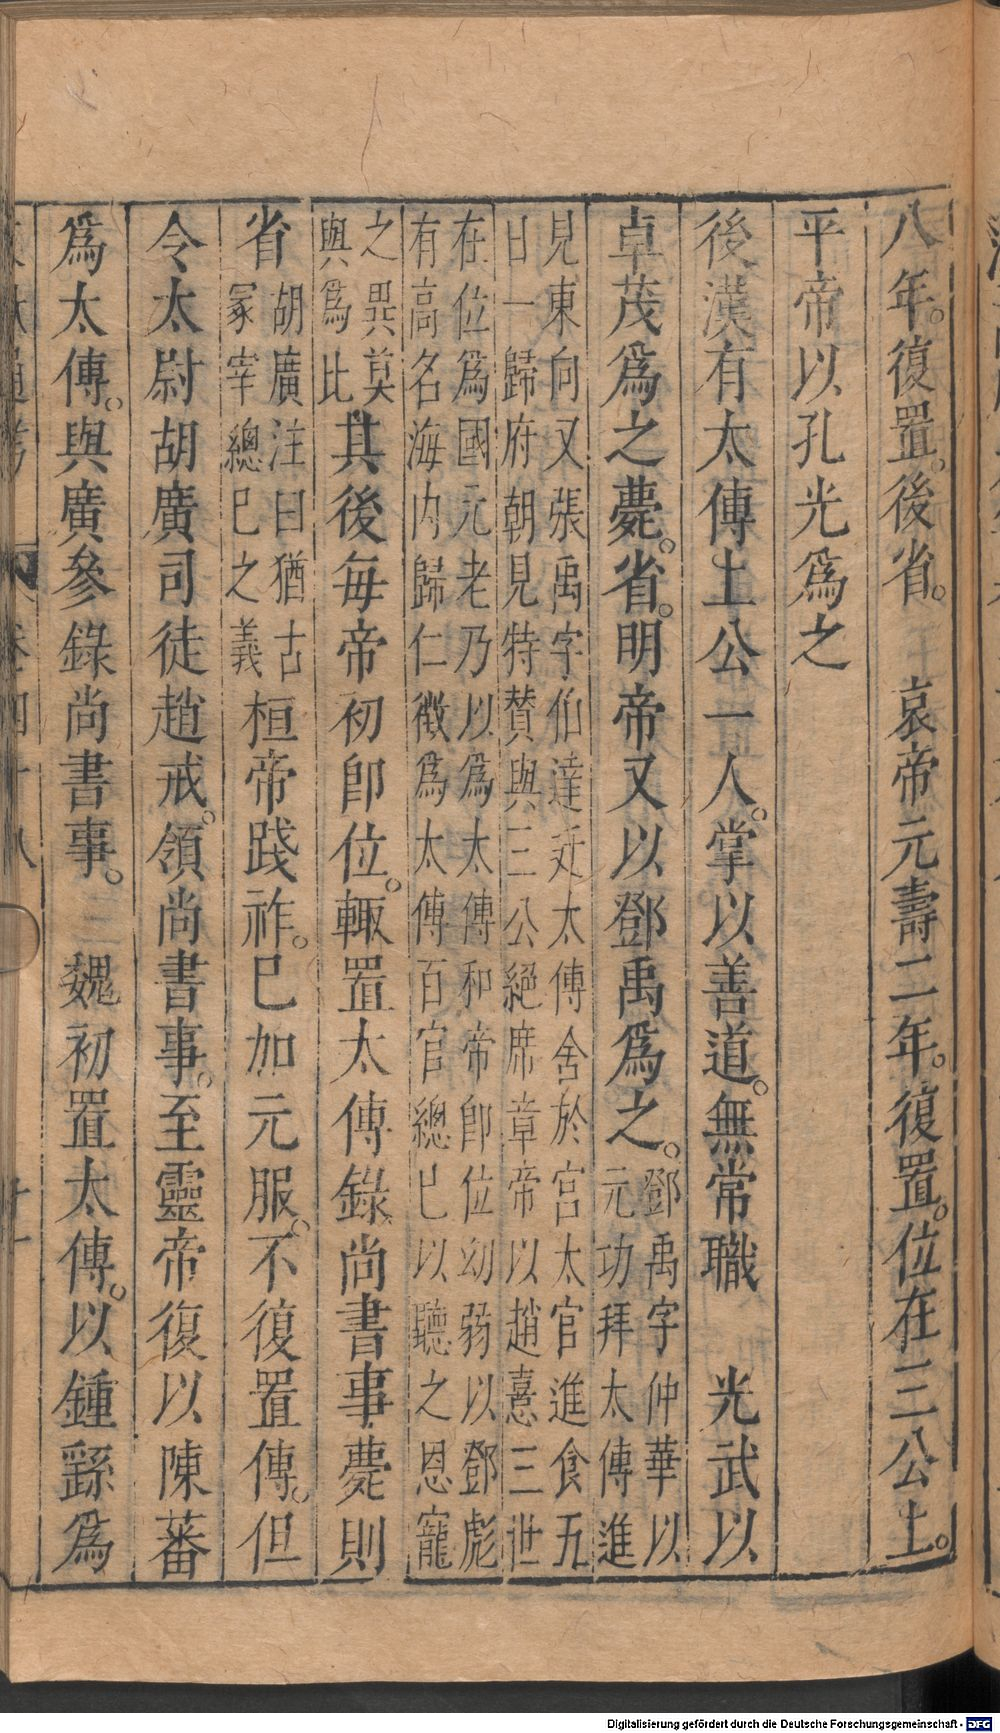 八年。復置。後省。 哀帝元壽二年。復置。位在三公上。
平帝以孔光爲之
後漢有太傅上公一人。掌以善道。無常職 光武以
卓茂爲之。薨。省。明帝又以鄧禹爲之。鄧禹字仲華以元功拜太傅進
見東向又張禹字伯達迁太傅舍於宮太官進食五
日一歸府朝見特贊與三公絕席章帝以趙憙三世
在位爲國元老乃以爲太傅和帝即位幼弱以鄧彪
有高名海内歸仁徵爲太傅百官總已以聽之恩寵
之異莫與爲比其後每帝初即位。輙置太傅錄尚書事薨則
省胡廣注曰猶古冢宰總已之義桓帝踐祚。已加元服。不復置傅。但
令太尉胡廣司徒趙戒。領尚書事。至靈帝復以陳蕃
爲太傅。與廣參錄尚書事。 魏初置太傅。以鍾繇爲
通考 卷四十八
Digitalisierung gefördert durch die Deutsche Forschungsgemeinschaft - DFG